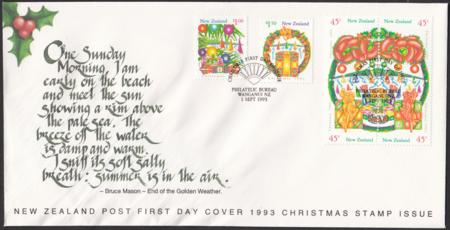 One Sunday
Morning, I am
early on the beach
and meet the sun
shewing a rim above
the pale sea. The
breeze off the water
is damp and warm.
I sniff its soft salty
breath: summer is in the air.
– Bruce Mason – End of the Golden Weather.
New Zealand
$1.00
New Zealand
$1.50
FIRST DAY
PHILATELIC BUREAU
WANGANUI NZ
1 SEPT 1993
45c New Zealand
New Zealand 45c
45c New Zealand
New Zealand 45c
NEW ZEALAND POST FIRST DAY COVER 1993 CHRISTMAS STAMP ISSUE